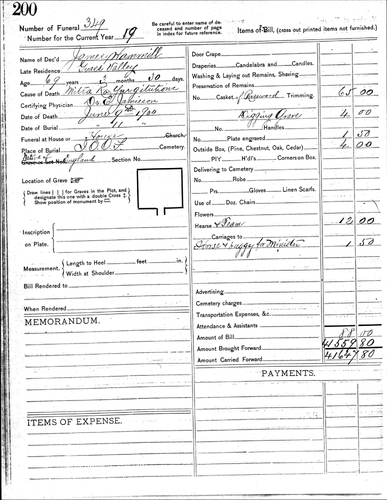 200
Number of Funeral 349
Number for the Current Year 19
Be careful to enter name of deceased and number of page in index for future reference.
Items of Bill, (cross out printed items not furnished.)
Name of Dec'd James
Late Residence Grass Valley
69 years 2 months 30 days.
Cause of Death
Certifying Physician Dr.
Date of Death June 9th 1900
Date of Burial " 11 "
Funeral at House or House Church.
Place of Burial I.O.O.F. Cemetery.
Native of England Section No.
Location of Grave
Draw lines for Graves in the Plot, and designate this one with a double Cross
Show position of monument by
Inscription on Plate.
Measurement. Length to Heel feet in.
Width at Shoulder
Bill Rendered to
When Rendered
MEMORANDUM.
ITEMS OF EXPENSE.
Door Crape
Draperies Candelabra and Candles.
Washing & Laying out Remains, Shaving
Preservation of Remains
No. Casket, Trimming. 65 00
Digging Grave 4 00
No. Handles
No. Plate engraved 1 50
Outside Box, (Pine, Chestnut, Oak, Cedar) 4 00
PIY H'd'l's Corners on Box.
Delivering to Cemetery
No. Robe
Prs. Gloves Linen Scarfs.
Use of Doz. Chairs
Flowers
Hearse & Team 12 00
Carriages to
Horse & buggy for Minister 1 50
Advertising
Cemetery charges
Transportation Expenses, &c.
Attendance & Assistants 88 00
Amount Brought Forward 41559 80
Amount Carried Forward 41647 80
PAYMENTS.